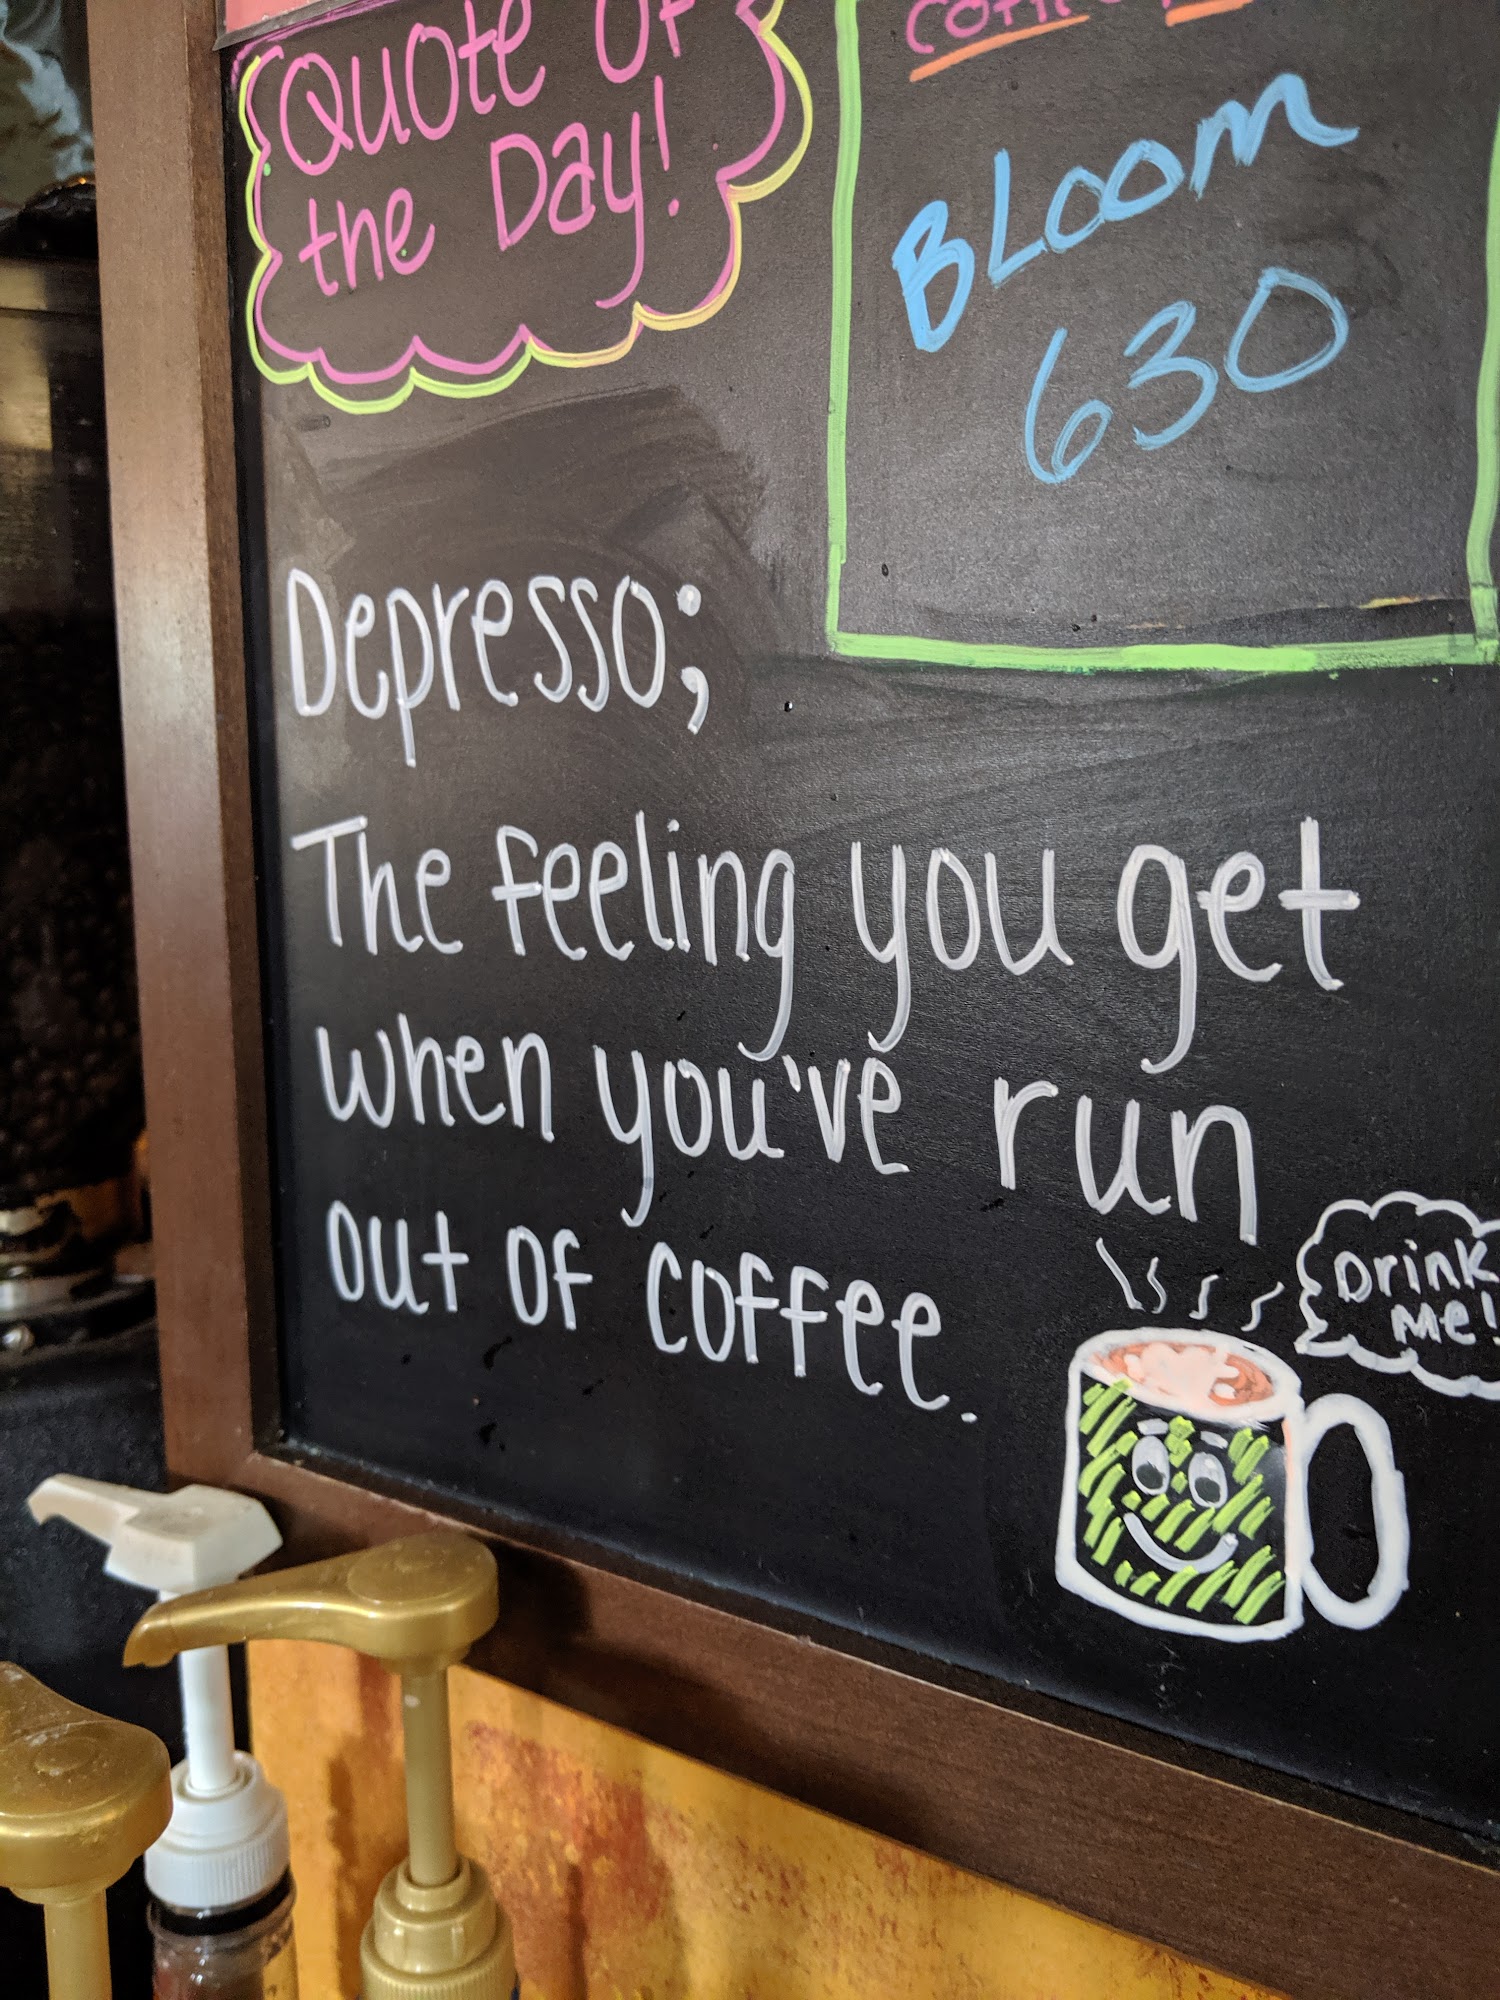 Quote of
the Day!
BLoom
630
Depresso;
The feeling you get
when you've run
out of coffee.
Drink
Me!